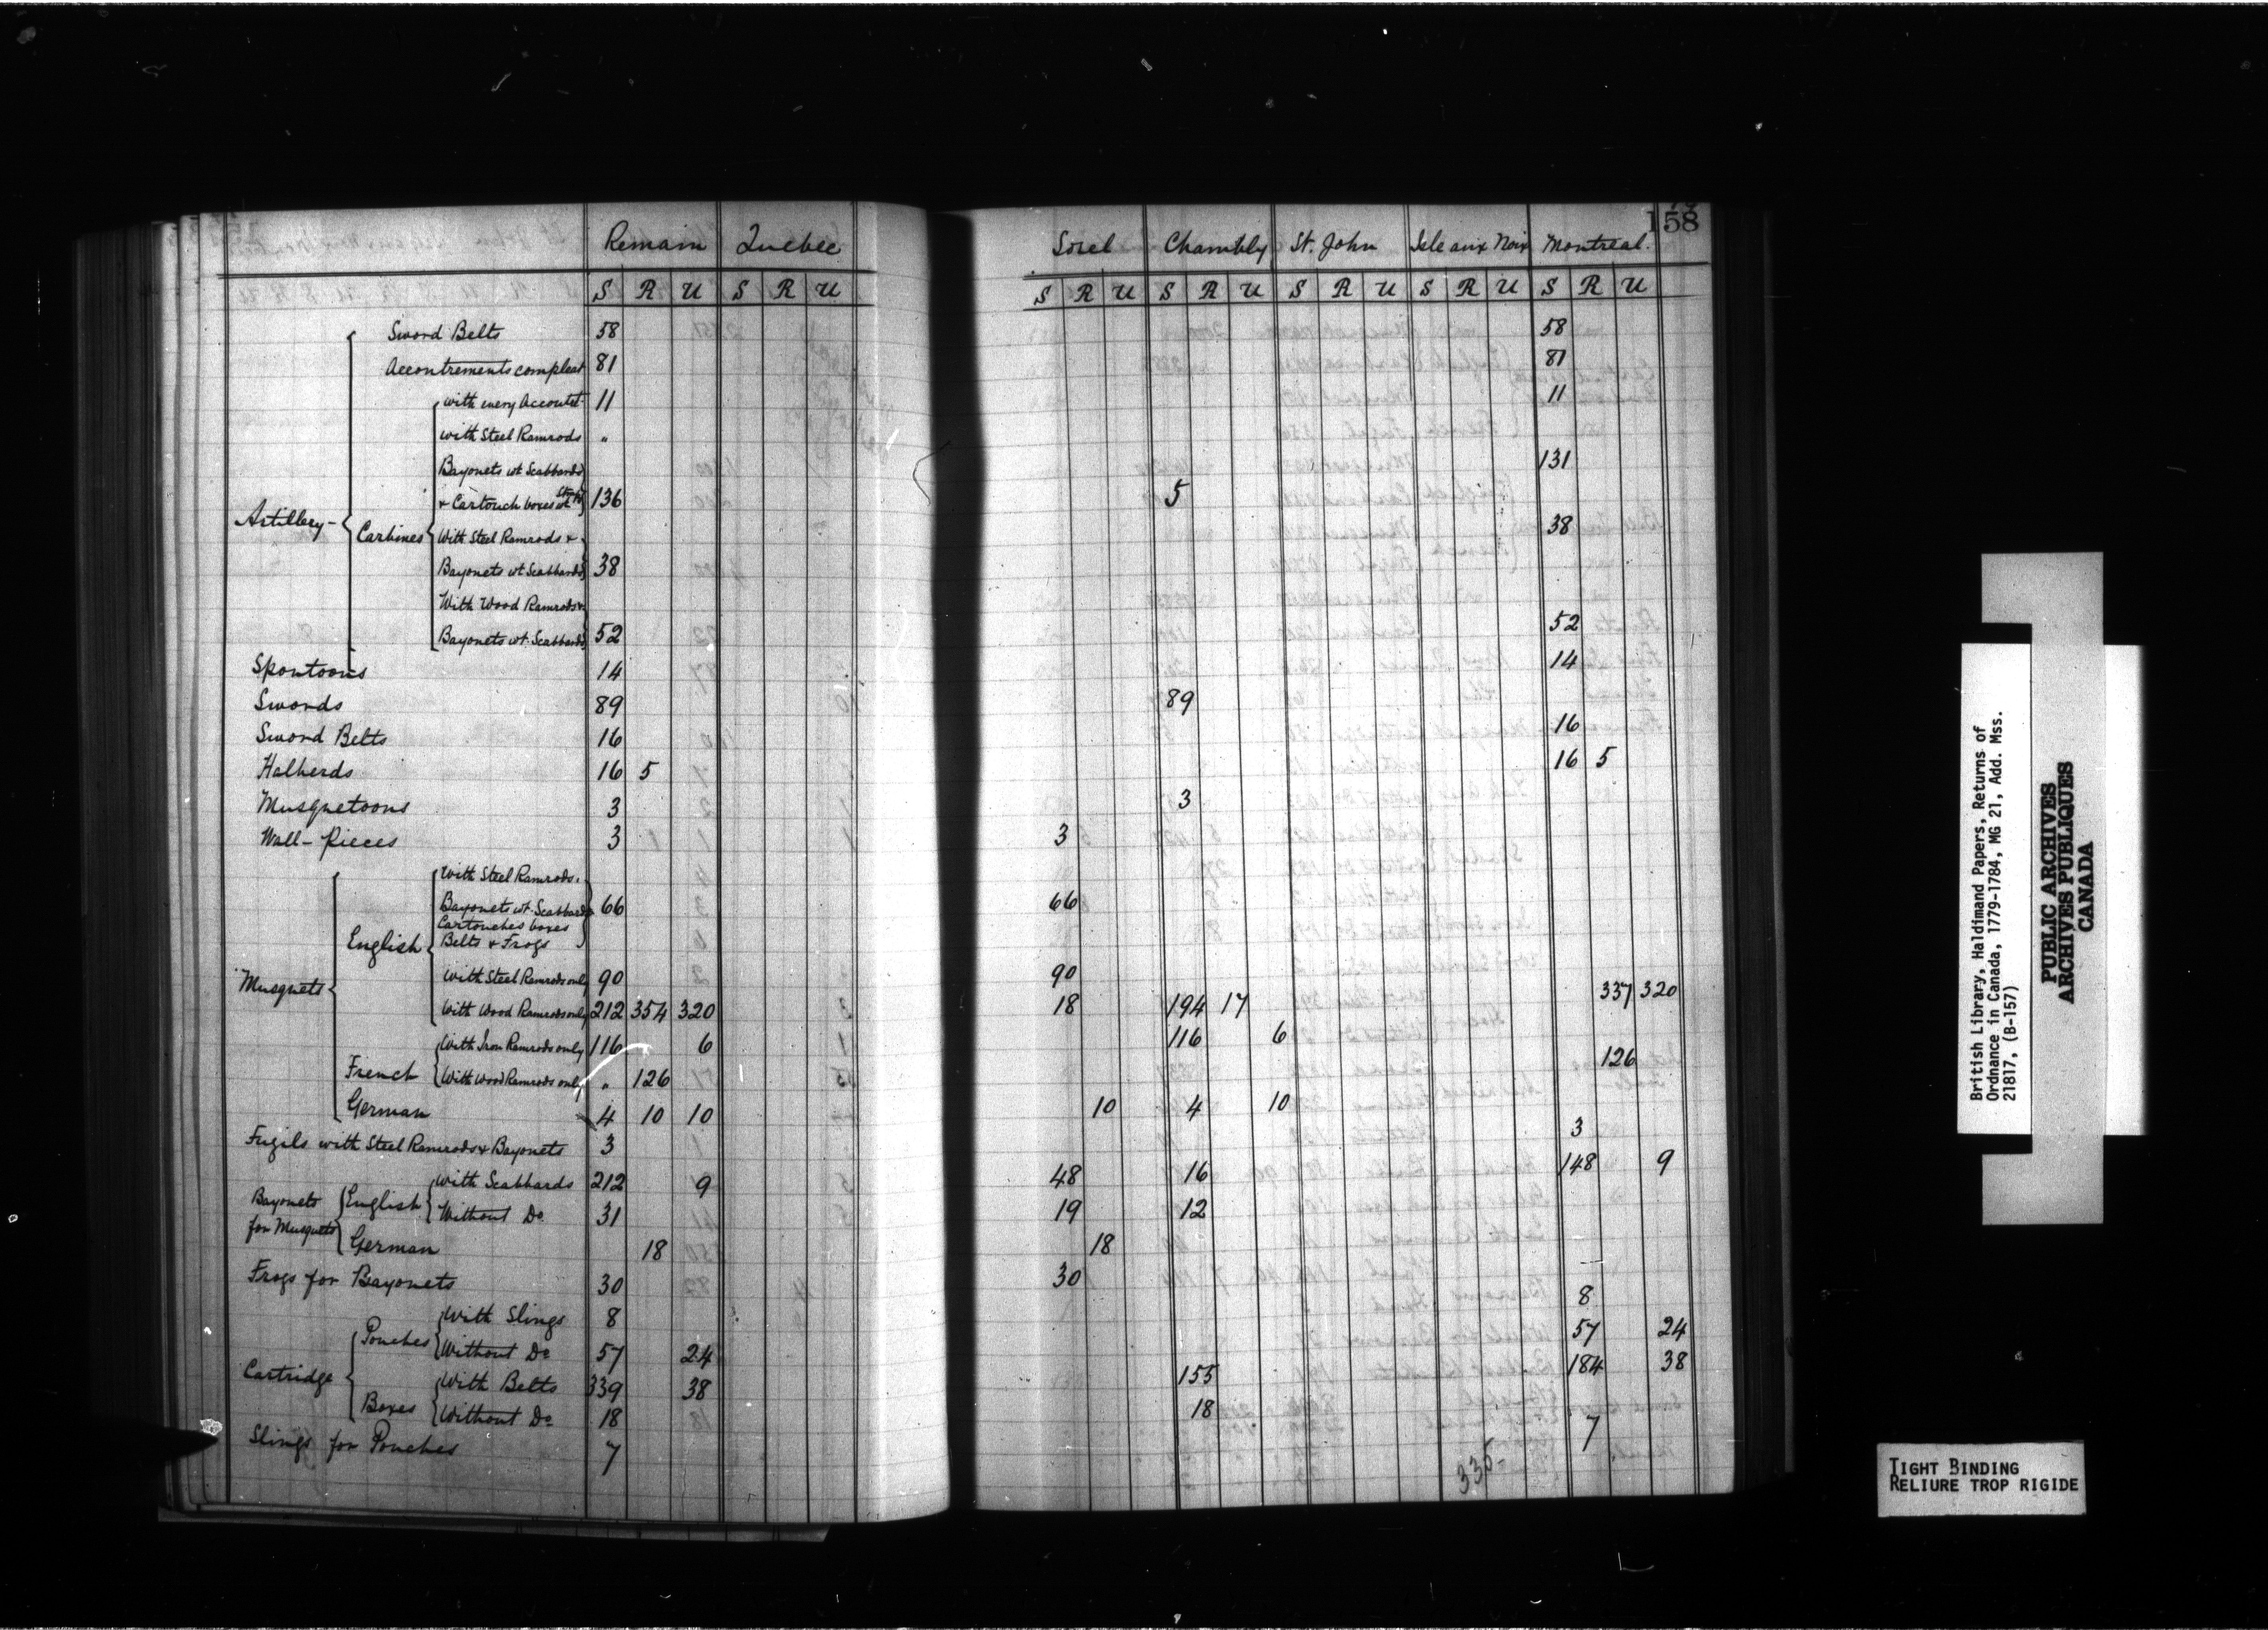 158
Remain Quebec Sorel Chambly St. John Isle aux Noix Montreal.
S R U S R U S R U S R U S R U S R U S R U
Sword Belts 58 58
Accoutrements compleat 81 81
with every Accoutt. 11 11
with Steel Ramrods "
Bayonets wt Scabbards 131
+ Cartouch boxes wt Straps 136 5
Artillery - Carbines With Steel Ramrods + 38
Bayonets wt Scabbards 38
With Wood Ramrods +
Bayonets wt. Scabbards 52 52
Spontoons 14 14
Swords 89 89
Sword Belts 16 16
Halberds 16 5 16 5
Musquetoons 3 3
Wall-Pieces 3 3
With Steel Ramrods.
Bayonets wt. Scabbards 66 66
Cartouches boxes
English Belts + Frogs
With Steel Ramrods only 90 90
Musquets With Wood Ramrods only 212 354 320 18 194 17 337 320
With Iron Ramrods only 116 6 116 6
French With Wood Ramrods only " 126 126
German 4 10 10 10 4 10
Fugils with Steel Ramrods + Bayonets 3 3
With Scabbards 212 9 48 16 148 9
Bayonets for Musquets English Without Do. 31 19 12
German 18 18
Frogs for Bayonets 30 30
With Slings 8 8
Pouches Without Do 57 24 57 24
Cartridge With Belts 339 38 155 184 38
Boxes Without Do 18 18
Slings for Pouches 7 7
335-
British Library, Haldimand Papers, Returns of
Ordnance in Canada, 1779-1784, MG 21, Add. Mss.
21817, (B-157)
PUBLIC ARCHIVES
ARCHIVES PUBLIQUES
CANADA
TIGHT BINDING
RELIURE TROP RIGIDE